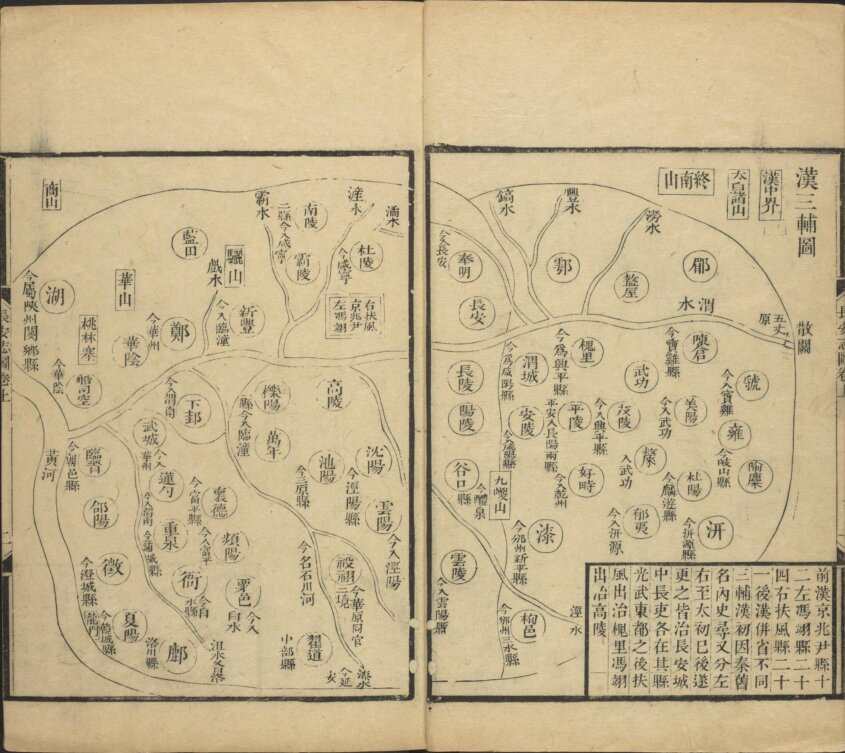 漢三輔圖
漢中界
太白諸山
終南山
散關
五丈原
渭水
郿
盩厔
澇水
豐水
鄠
鎬水
今入長安
奉明
長安
陳倉
今寶雞縣
虢
今入寶雞
雍
今岐山縣
隃麋
汧
今汧源縣
武功
美陽
今入武功
杜陽
今麟遊縣
郁夷
今入汧源
槐里
今為興平縣
茂陵
今入興平縣
斄
入武功
平陵
好畤
今入乾州
渭城
今為咸陽縣
安陵
今咸陽縣
長陵
陽陵
谷口
今醴泉縣
九嵕山
漆
今邠州新平縣
雲陵
今入雲陽縣
栒邑
今邠州三水縣
涇水
前漢京兆尹縣十
二左馮翊縣二十
四右扶風縣二十
一後漢併省不同
三輔漢初因秦舊
名內史尋又分左
右至太初已後遂
更之皆治長安城
中長吏各在其縣
光武東都之後扶
風出治槐里馮翊
出治高陵
長安志圖卷上
滻水
潏水
霸水
杜陵
今咸寧
南陵
霸陵
二縣今入咸寧
右扶風
京兆尹
左馮翊
藍田
驪山
戲水
新豐
今入臨潼
商山
華山
湖
今屬陝州閿鄉縣
桃林塞
船司空
今華陰
華陰
鄭
今華州
下邽
今入渭南
高陵
櫟陽
萬年
縣今入臨潼
池陽
今三原縣
沈陽
今涇陽縣
雲陽
今入涇陽
武城
今入華州
蓮勺
今入渭南
懷德
今富平縣
重泉
今蒲城縣
頻陽
今入富平
臨晉
今朝邑縣
黃河
郃陽
徵
今澄城縣
夏陽
今韓城縣
龍門
衙
粟邑
鄜
洛川縣
沮水
祋祤
今華原同官二境
今名石川河
翟道
中部縣
長安志圖卷上